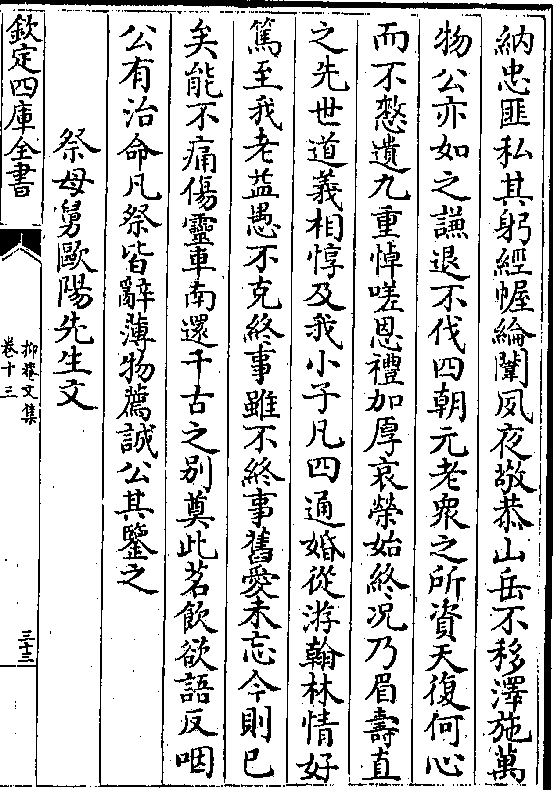 納忠匪私其躬經幄綸闈夙夜敬恭山岳不移澤施萬
物公亦如之謙退不伐四朝元老衆之所資天復何心
而不憗遺九重悼嗟恩禮加厚哀榮始終况乃眉壽直
之先世道義相惇及我小子凡四通婚從游翰林情好
篤至我老益愚不克終事雖不終事舊愛未忘今則已
矣能不痛傷靈車南還千古之别奠此茗飲欲語反咽
公有治命凡祭皆辭薄物薦誠公其鑒之
祭母舅歐陽先生文
欽定四庫全書
抑菴文集
卷十三
三十三